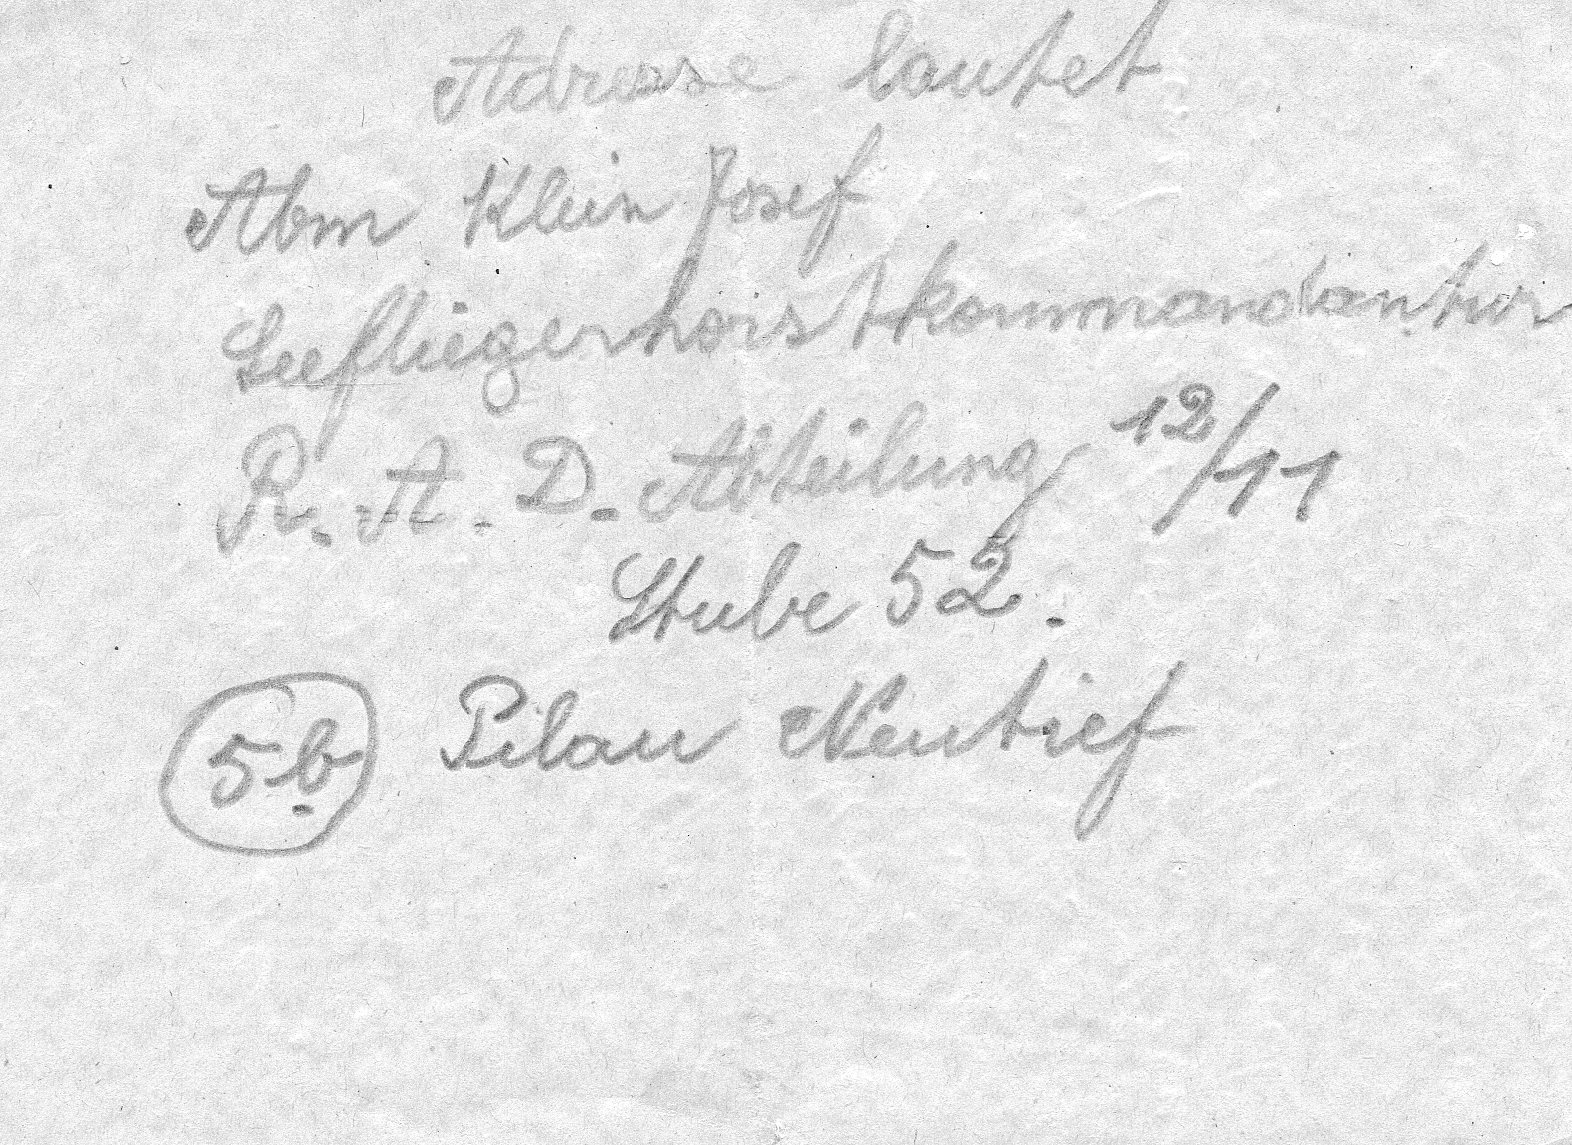 Adresse lautet
Abm Klein Josef
Seefliegerhorstkommandantur
R. A. D. Abteilung 12/11
Stube 52.
5b Pilau Neutief